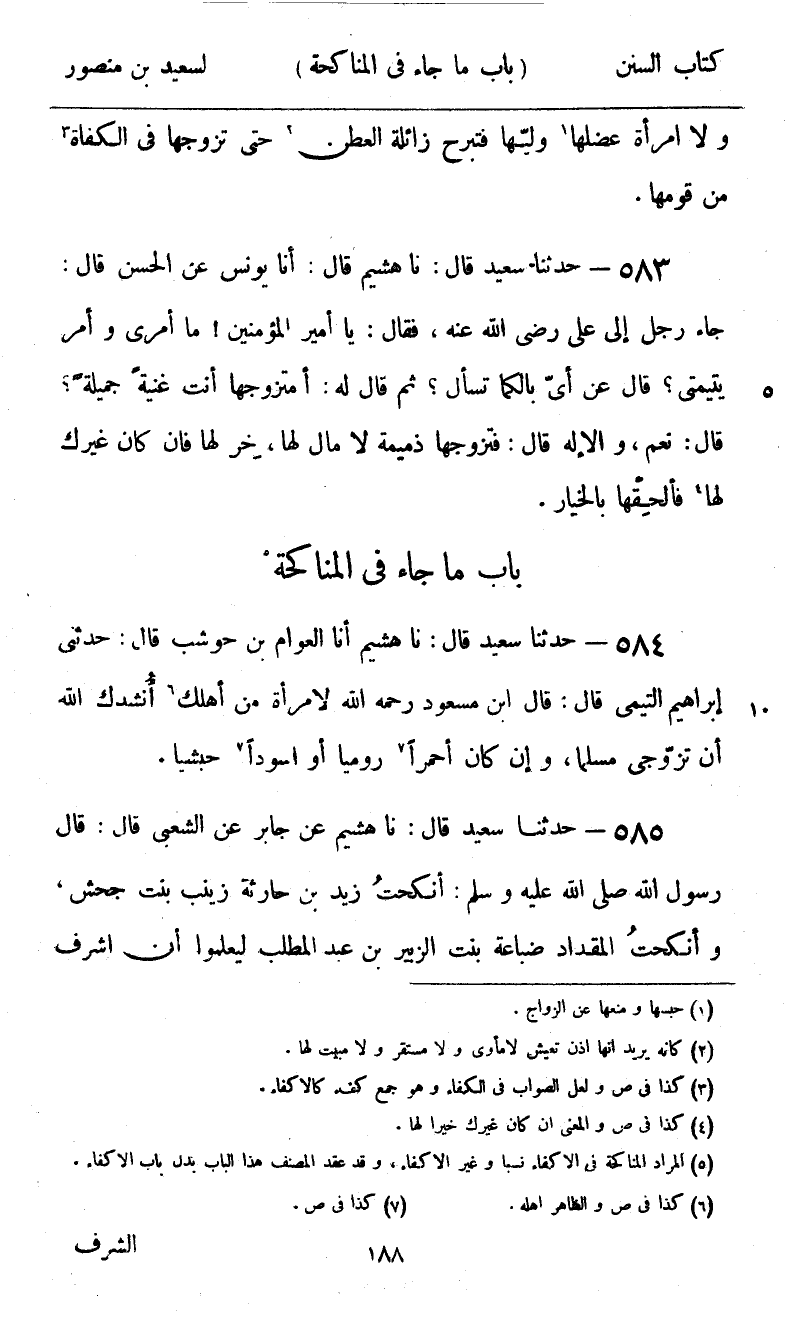 كتاب السنن (باب ما جاء فى المناكحة) لسعيد بن منصور
و لا امرأة عضلها١ وليّها فتبرح زائلة العطن٢ حتى تزوجها فى الكفاة٣
من قومها .
٥٨٣ – حدثنا سعيد قال : نا هشيم قال : أنا يونس عن الحسن قال :
جاء رجل إلى على رضى الله عنه ، فقال : يا أمير المؤمنين ! ما أمرى و أمر
يتيمتى ؟ قال عن أىّ بالكما تسأل ؟ ثم قال له : أمتزوجها أنت غنيةً جميلةً ؟ ٥
قال : نعم ، و الإله قال : فتزوجها ذميمة لا مال لها ، خر لها فان كان غيرك
لها٤ فألحقّها بالخيار .
باب ما جاء فى المناكحة٥
٥٨٤ – حدثنا سعيد قال : نا هشيم أنا العوام بن حوشب قال : حدثنى
إبراهيم التيمى قال : قال ابن مسعود رحمه الله لامرأة من أهلك٦ أُنشدك الله ١٠
أن تزوّجى مسلما ، و إن كان أحمراً٧ روميا أو اسوداً٧ حبشيا .
٥٨٥ – حدثنا سعيد قال : نا هشيم عن جابر عن الشعبى قال : قال
رسول الله صلى الله عليه و سلم : أنكحتُ زيد بن حارثة زينب بنت جحش ،
و أنكحتُ المقداد ضباعة بنت الزبير بن عبد المطلب ليعلموا أن اشرف
(١) حبسها و منعها عن الزواج .
(٢) كانه يريد انها اذن تعيش لامأوى و لا مستقر و لا مبيت لها .
(٣) كذا فى ص و لعل الصواب فى الكفاء و هو جمع كفء كالاكفاء .
(٤) كذا فى ص و المعنى ان كان غيرك خيرا لها .
(٥) المراد المناكحة فى الاكفاء نسبا و غير الاكفاء ، و قد عقد المصنف هذا الباب بدل باب الاكفاء .
(٦) كذا فى ص و الظاهر اهله . (٧) كذا فى ص .
١٨٨ الشرف